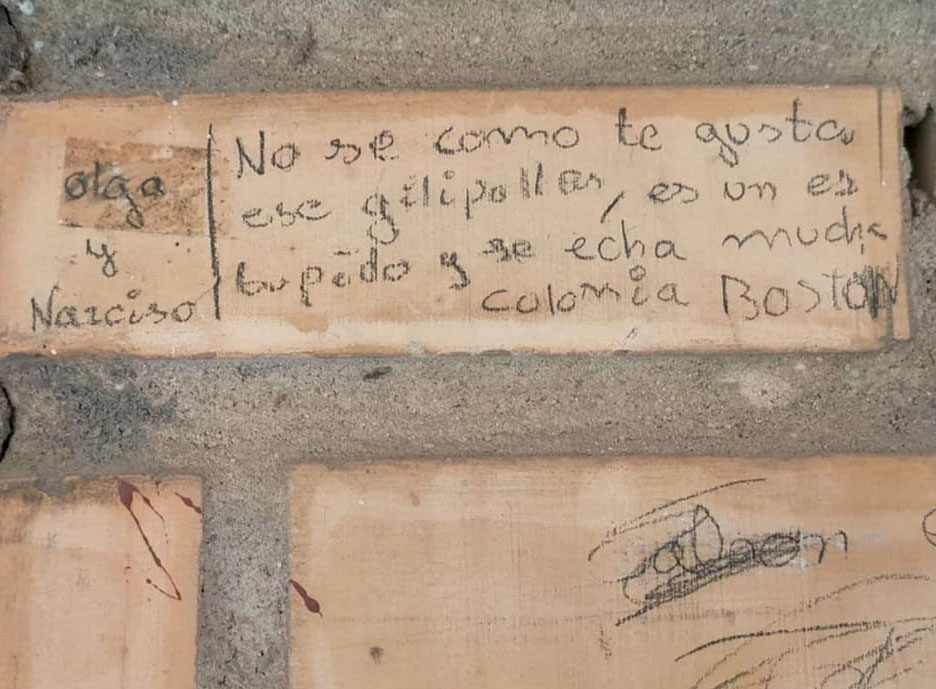 olga
y
Narciso
No se como te gusta
ese gilipollas, es un es
tupido y se echa mucha
colonia Boston